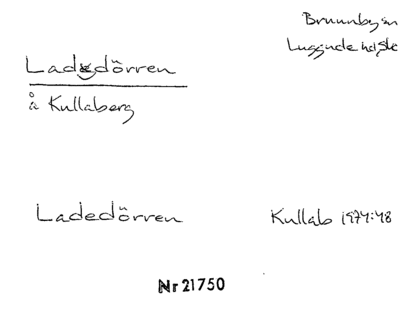 Brunnby sn
Luggude hd, Sk
Ladedörren
å Kullaberg
Ladedörren
Kullab 1974:48
Nr 21750